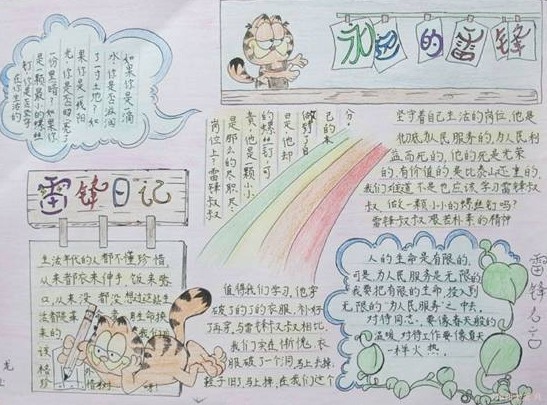 永远的雷锋
如果你是滴
水,你是否滋润
了寸土地?如
果你是线阳
光,你是否照亮了
一份黑暗?如果你
是一颗最小的螺丝
钉,你是否坚守
在你生活的
岗位上,雷锋叔叔
是那么的尽职尽
责,他是颗小小
的螺丝钉,可
是他却
做好了自
己的本
分。
坚守着自己生活的岗位,他是
彻底为人民服务的,为人民利
益而死的,他的死是光荣
的,有价值的是比泰山还重的,
我们难道不是也应该学习雷锋叔
叔,做一颗小小的螺丝钉吗?
雷锋叔叔艰苦朴素的精神
值得我们学习,他穿
破了的了的衣服,补好
了再穿,与雷锋叔叔相比,
我们实在惭愧,衣
服破了一个洞,马上丢掉,
鞋子旧了,马上换,在我们这个
雷锋日记
生活年代的人都不懂珍惜,
从来都衣来伸手,饭来张
口,从来没都没想过这些生
活都是革
来的
该
格
珍惜
人的生命是有限的,
可是为人民服务是无限的
我要把有限的生命投入到
无限的“为人民服务”之中去。
对待同志,要像春天般的
温暖,对待工作要像夏天
一样火热。
雷锋名言